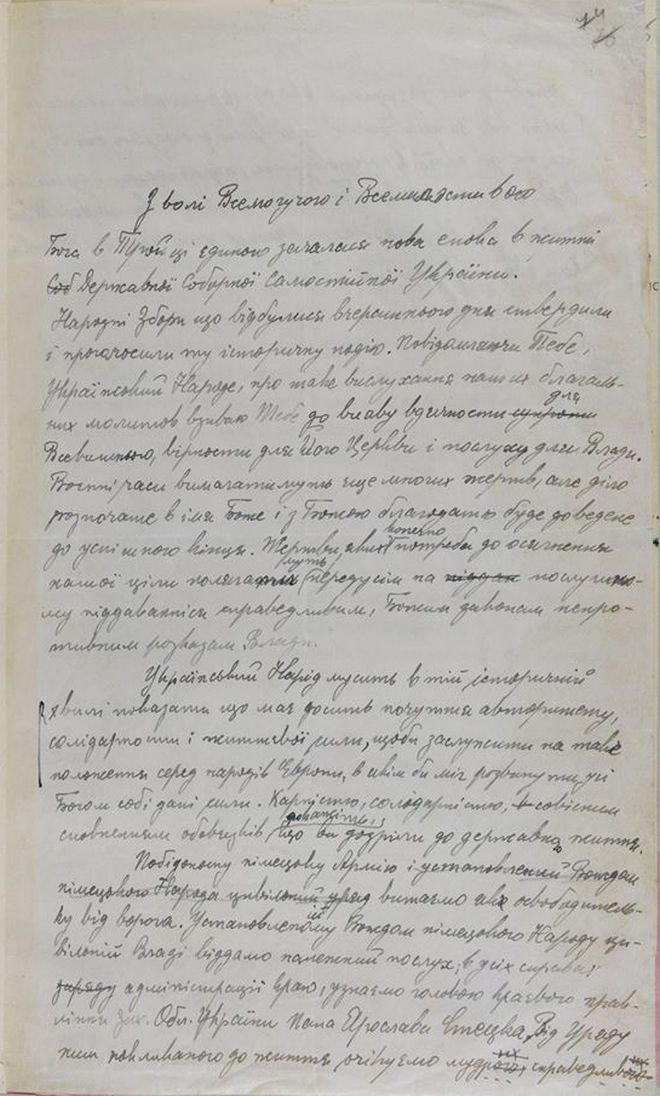 14
16
З волі Всемогучого і Всемилостивого
Бога в Тройці єдиного зачалася нова епоха в життні
Соб Державної Соборної Самостійної України.
Народні Збори що відбулися вчерашнього дня ствердили
і проголосили ту історичну подію. Повідомляючи Тебе,
Український Народе, про таке вислухання наших благаль-
них молитов взиваю Тебе до виаву вдячности для
Всевишнього, вірности для Його Церкви і послуху для Влади.
Воєнні часи вимагатимуть ще многих жертв, але діло
розпочате в імя Боже і з Божою благодатю буде доведене
до успішного кінця. Жертви, яких конечно потреба до осягнення
нашої ціли полягати муть передусім на піддан послушно-
му піддаванніся справедливим, Божим законам непро-
тивним розказам Влади.
Український Нарід мусить в тій історичній
хвилі показати що має досить почуття авторитету,
солідарности і життєвої сили, щоби заслужити на таке
положення серед народів Европи, в якім би міг розвинути усі
Богом собі дані сили. Карністю, солідарністю, совісним
сповненням обовязків докажіть, що ви дозріли до державного життя.
Побідоносну німецьку Армію і установлений Вождом
німецького Народа цивільний уряд витаємо як освободитель-
ку від ворога. Установленому Вождом німецького Народу ци-
вільній Владі віддамо належний послух, в усіх справах
заряду адміністрації краю, узнаємо головою краєвого прав-
ління Зах. Обл. України Пана Ярослава Стецка. Від Уряду
ним покликаного до життя, очікуємо мудрого, справедливого